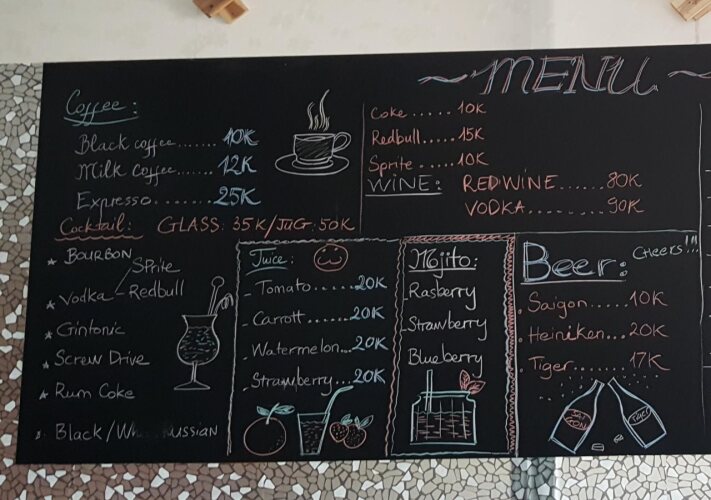 ~MENU~
Coffee:
Black coffee....... 10K
Milk Coffee....... 12K
Expresso......... 25K
Coke..... 10K
Redbull..... 15K
Sprite..... 10K
WINE: RED WINE...... 80K
VODKA......... 90K
Cocktail: GLASS: 35K/JUG: 50K
* BOURBON
* Vodka Sprite
Redbull
* Gintonic
* Screw Drive
* Rum Coke
Black/
Juice:
- Tomato....... 20K
- Carrott....... 20K
- Watermelon... 20K
- Strawberry... 20K
Mojito:
- Rasberry
- Strawberry
Blueberry
Beer: CHEERS!!!
. Saigon..... 10K
. Heiniken... 20K
. Tiger....... 17K
SAI GON
TIGER